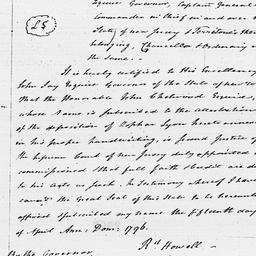 Esquire Governor, Captain General
Commander in Chief in and over
State of new Jersey & Territories the
belonging, Chancellor & Ordinary
the same. -
L S
It is hereby certified to His Excellency
John Jay Esquire Governor of the State of new
That the Honorable John Chetwood Esquire,
whose name is subscribed to the attestation
of the deposition of Asphar Lyon hereto annexed
in his proper handwriting, is second Justice of
the supreme Court of new Jersey duly appointed
commissioned that full faith & credit are d
to his Acts as such. In testimony whereof I have
caused the Great Seal of this State to be hereunto
affixed & subscribed my name the fifteenth day
of April Ann: Dom: 1796.
Rd Howell -
By the Governor